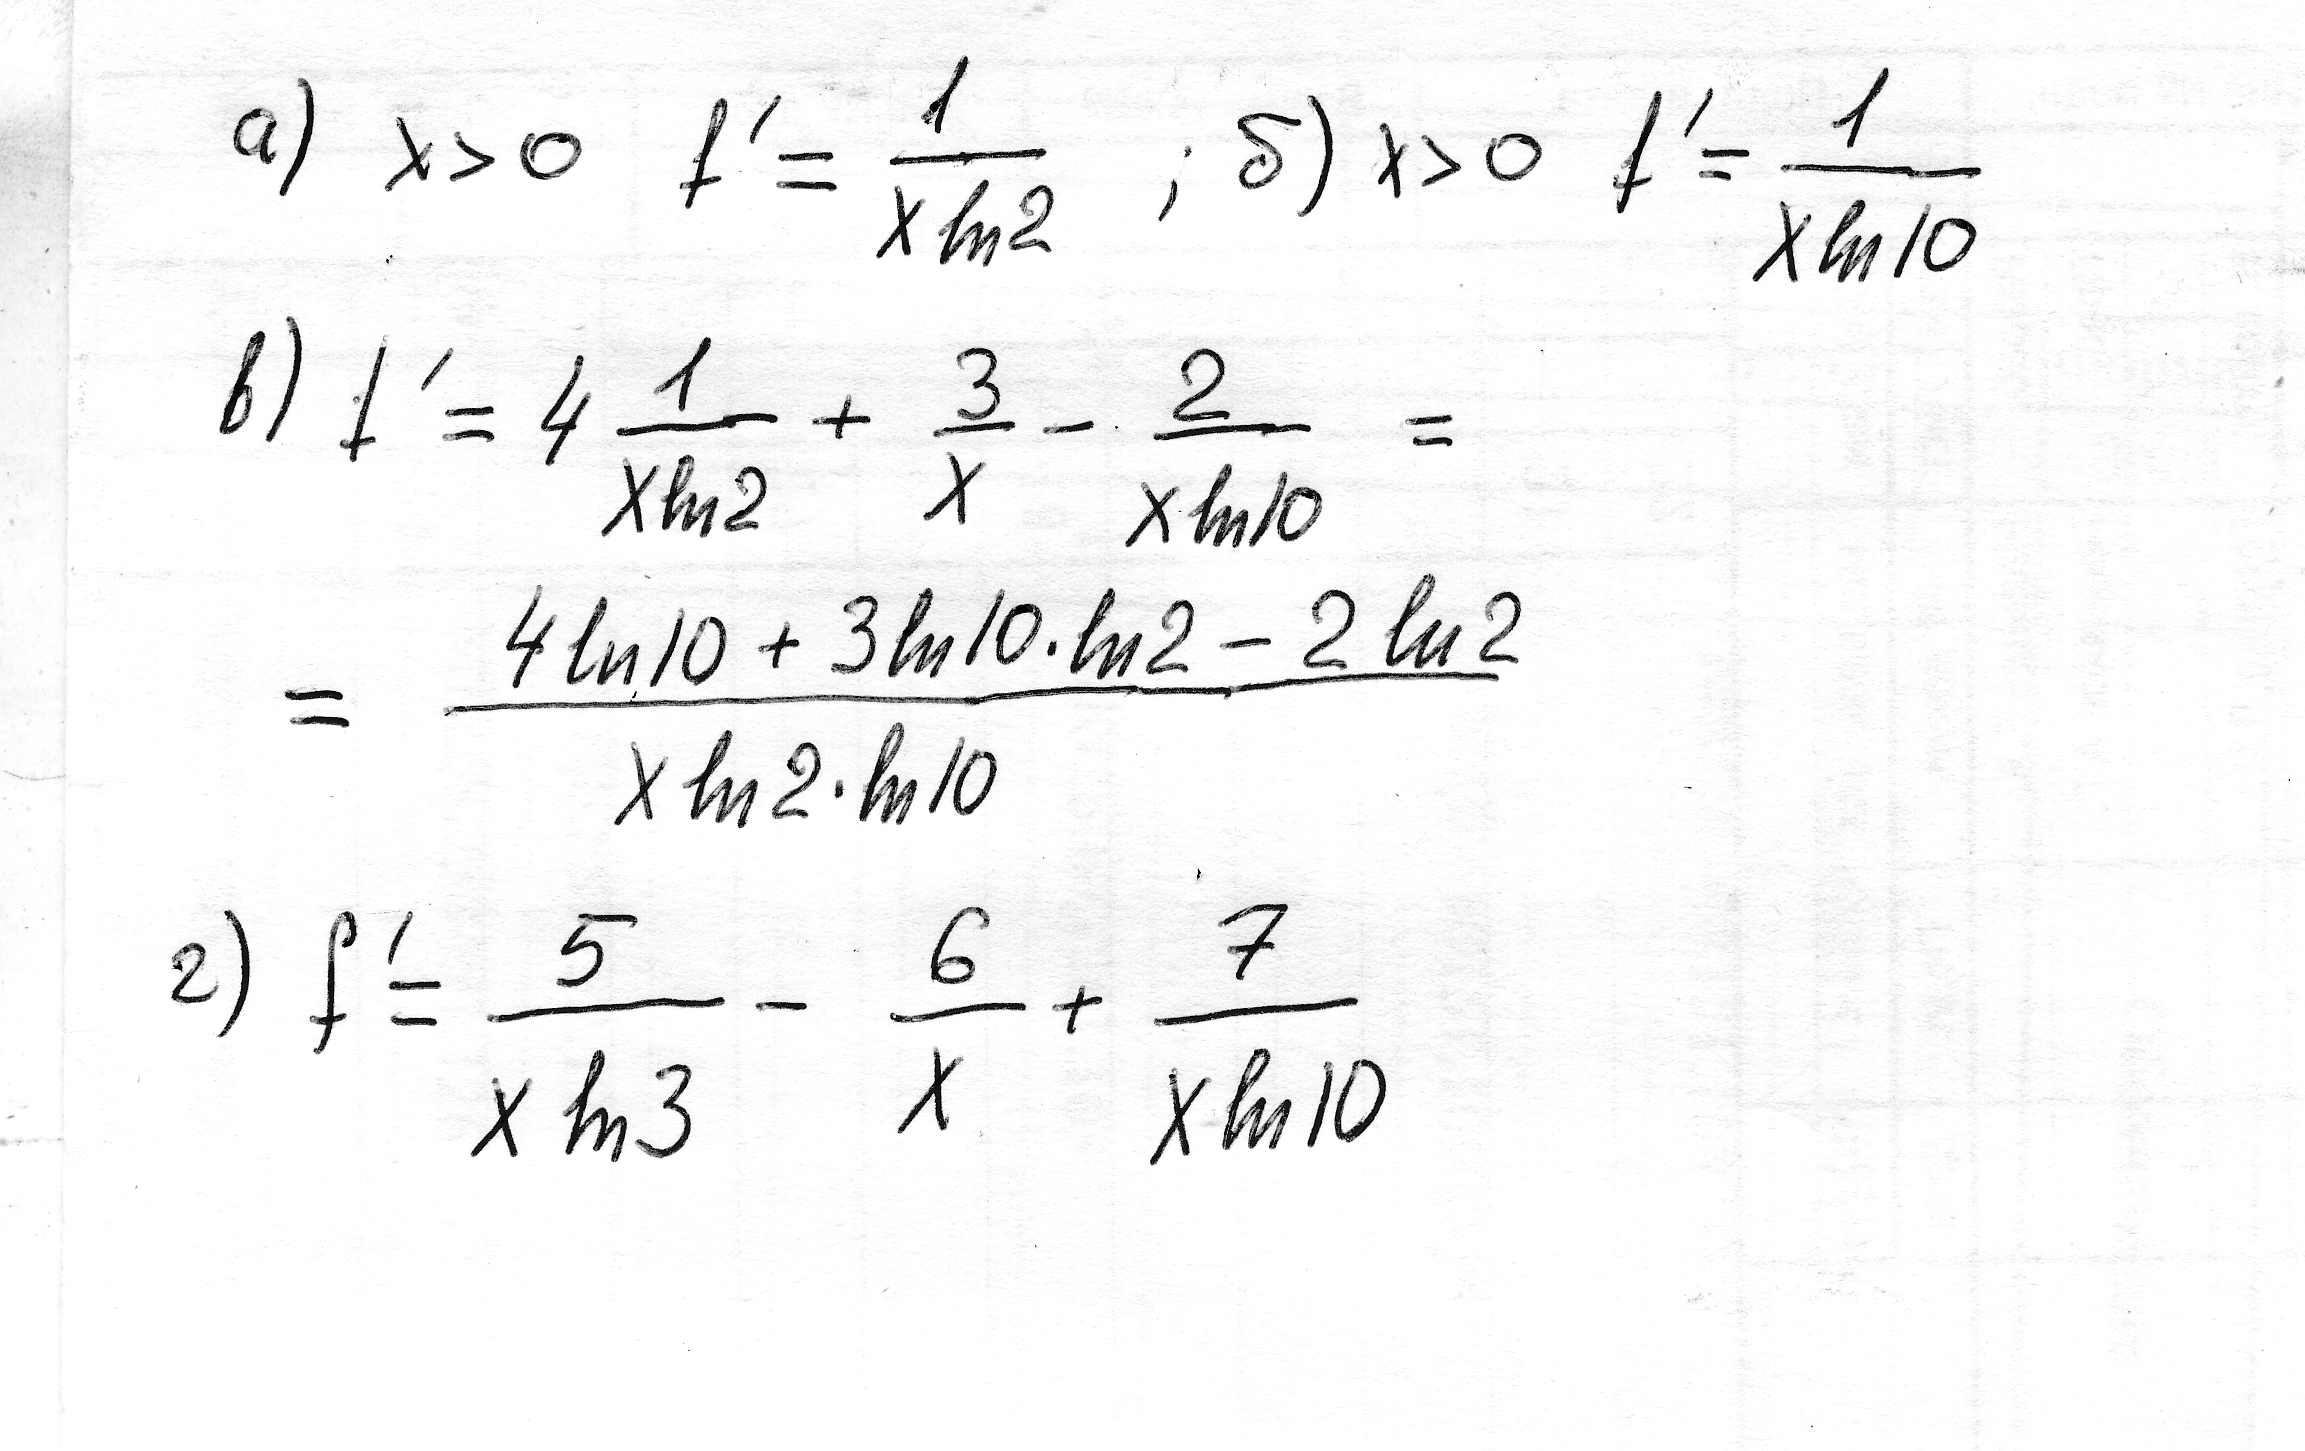 а) x>0 f' = 1/(x ln2) ; б) x>0 f' = 1/(x ln10)
в) f' = 4 1/(x ln2) + 3/x - 2/(x ln10) =
= (4 ln10 + 3 ln10 · ln2 - 2 ln2)/(x ln2 · ln10)
г) f' = 5/(x ln3) - 6/x + 7/(x ln10)